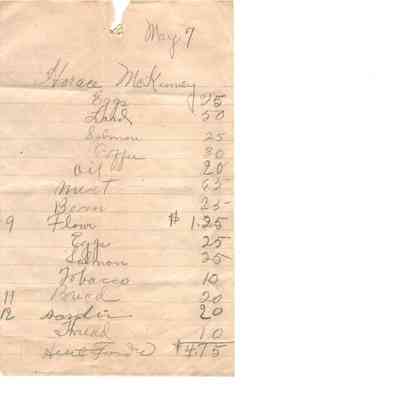 May 7
Horace McKinney
Eggs 25
Lard 50
Salmon 25
Coffee 30
Oil 20
Meat 65
Bean 25
9 Flour $ 1.25
Eggs 25
Salmon 25
Tobacco 10
11 Bread 20
12 20
Thread 10
$4.75